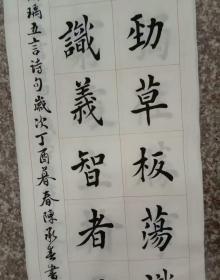 勁草板蕩
識義智者
瑀五言诗句歲次丁酉暮春陳永春書